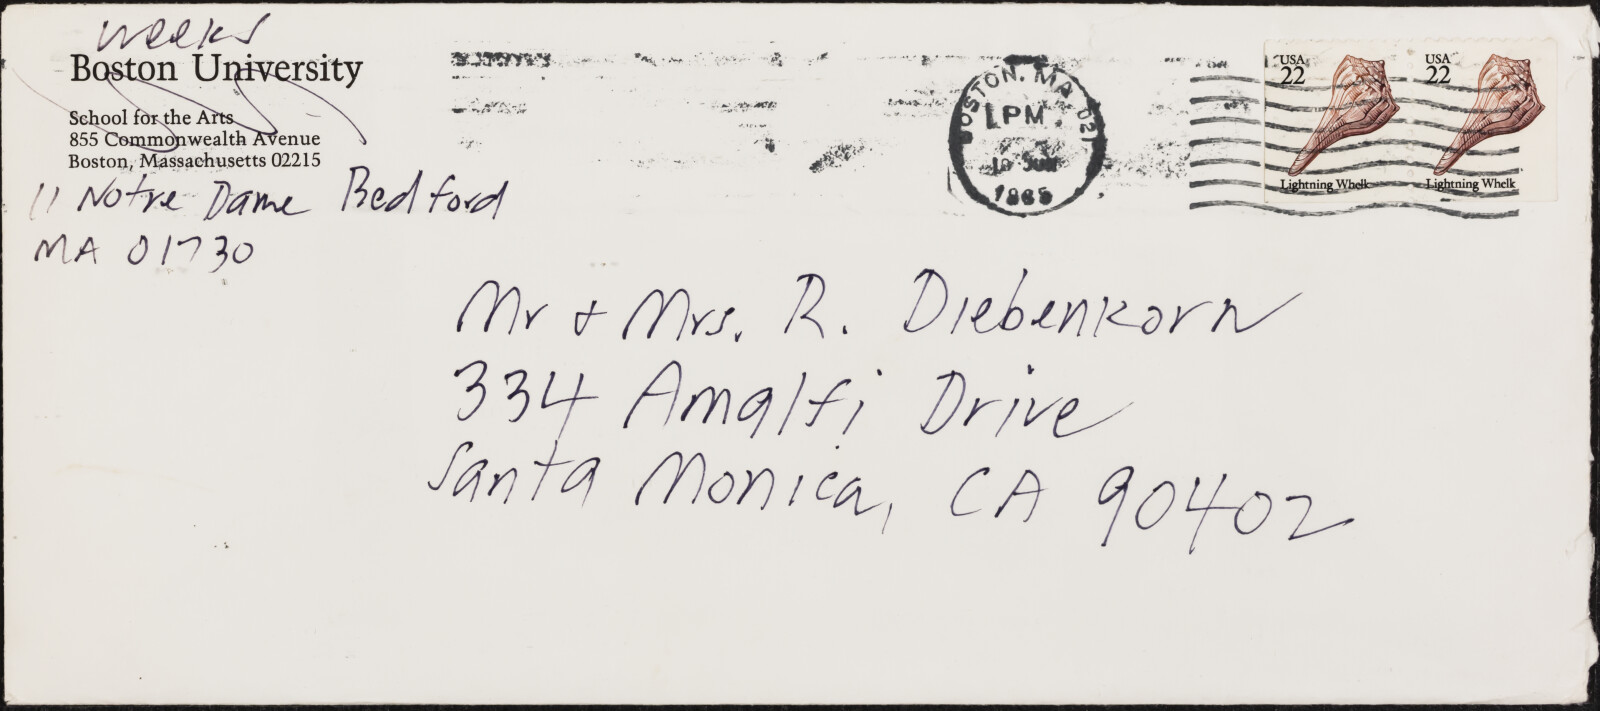 Weeks
Boston University
School for the Arts
855 Commonwealth Avenue
Boston, Massachusetts 02215
11 Notre Dame Bedford
MA 01730
BOSTON, MA 021
PM
1985
USA
22
Lightning Whelk
USA
22
Lightning Whelk
Mr + Mrs. R. Diebenkorn
334 Amalfi Drive
Santa Monica, CA 90402